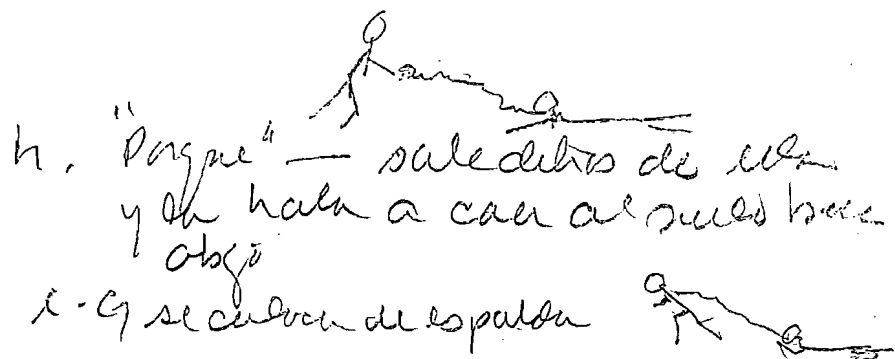 h. "Porque" — sale detras de ella
y la hala a caer al suelo boca
abajo
i - G se coloca de espalda